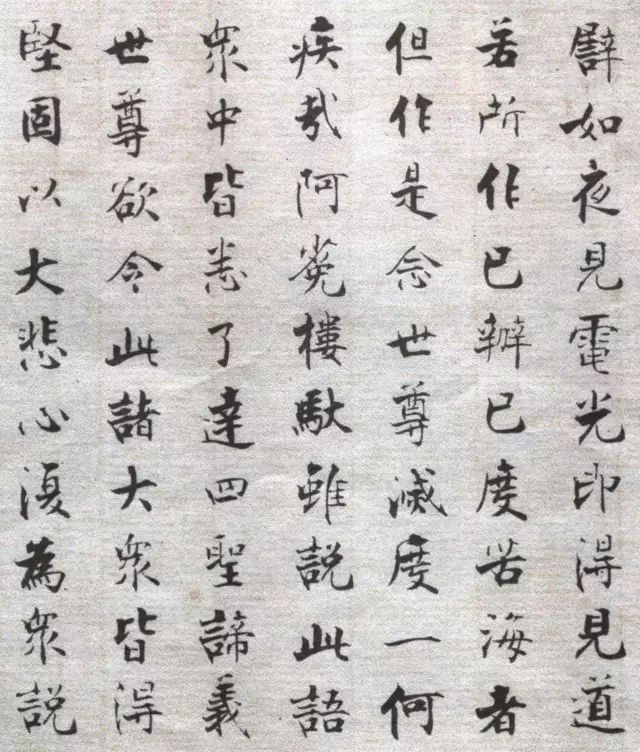 譬如夜見電光即得見道
若所作已辦已度苦海者
但作是念世尊滅度一何
疾哉阿㝹樓馱雖說此語
衆中皆悉了達四聖諦義
世尊欲令此諸大衆皆得
堅固以大悲心復為衆説